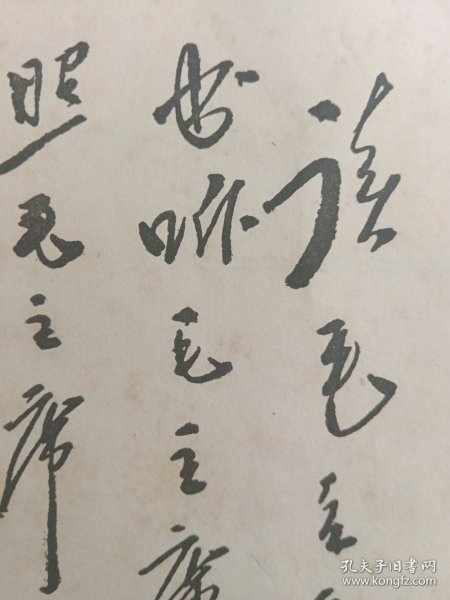 读毛主
书听毛主席
照毛主席
孔夫子旧书网
www.kongfz.com